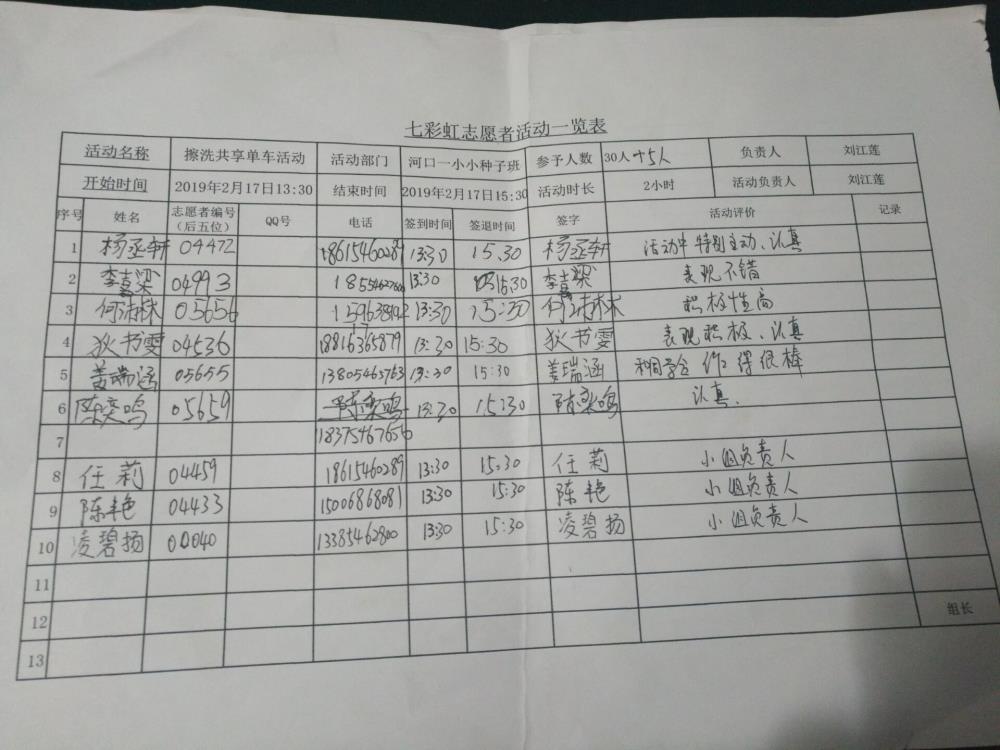 七彩虹志愿者活动一览表
活动名称 擦洗共享单车活动 活动部门 河口一小小种子班 参予人数 30人+5人 负责人 刘江莲
开始时间 2019年2月17日13:30 结束时间 2019年2月17日15:30 活动时长 2小时 活动负责人 刘江莲
序号 姓名 志愿者编号（后五位） QQ号 电话 签到时间 签退时间 签字 活动评价 记录
1 杨丞轩 04472 18615460289 13:30 15.30 杨丞轩 活动中特别主动、认真
2 李喜梁 04993 13:30 15:30 李喜梁 表现不错
3 05656 13:30 15:30 积极性高
4 狄书雯 04536 18816365879 13:30 15:30 狄书雯 表现积极、认真
5 姜瑞涵 05655 13805463763 13:30 15:30 姜瑞涵 和同学合作得很棒
6 陈奕鸣 05659 陈奕鸣 13:30 15:30 陈奕鸣 认真.
7 18375467656
8 任莉 04459 18615460289 13:30 15:30 任莉 小组负责人
9 陈艳 04433 15006868081 13:30 15:30 陈艳 小组负责人
10 凌碧扬 00040 13385462800 13:30 15:30 凌碧扬 小组负责人
11
12 组长
13